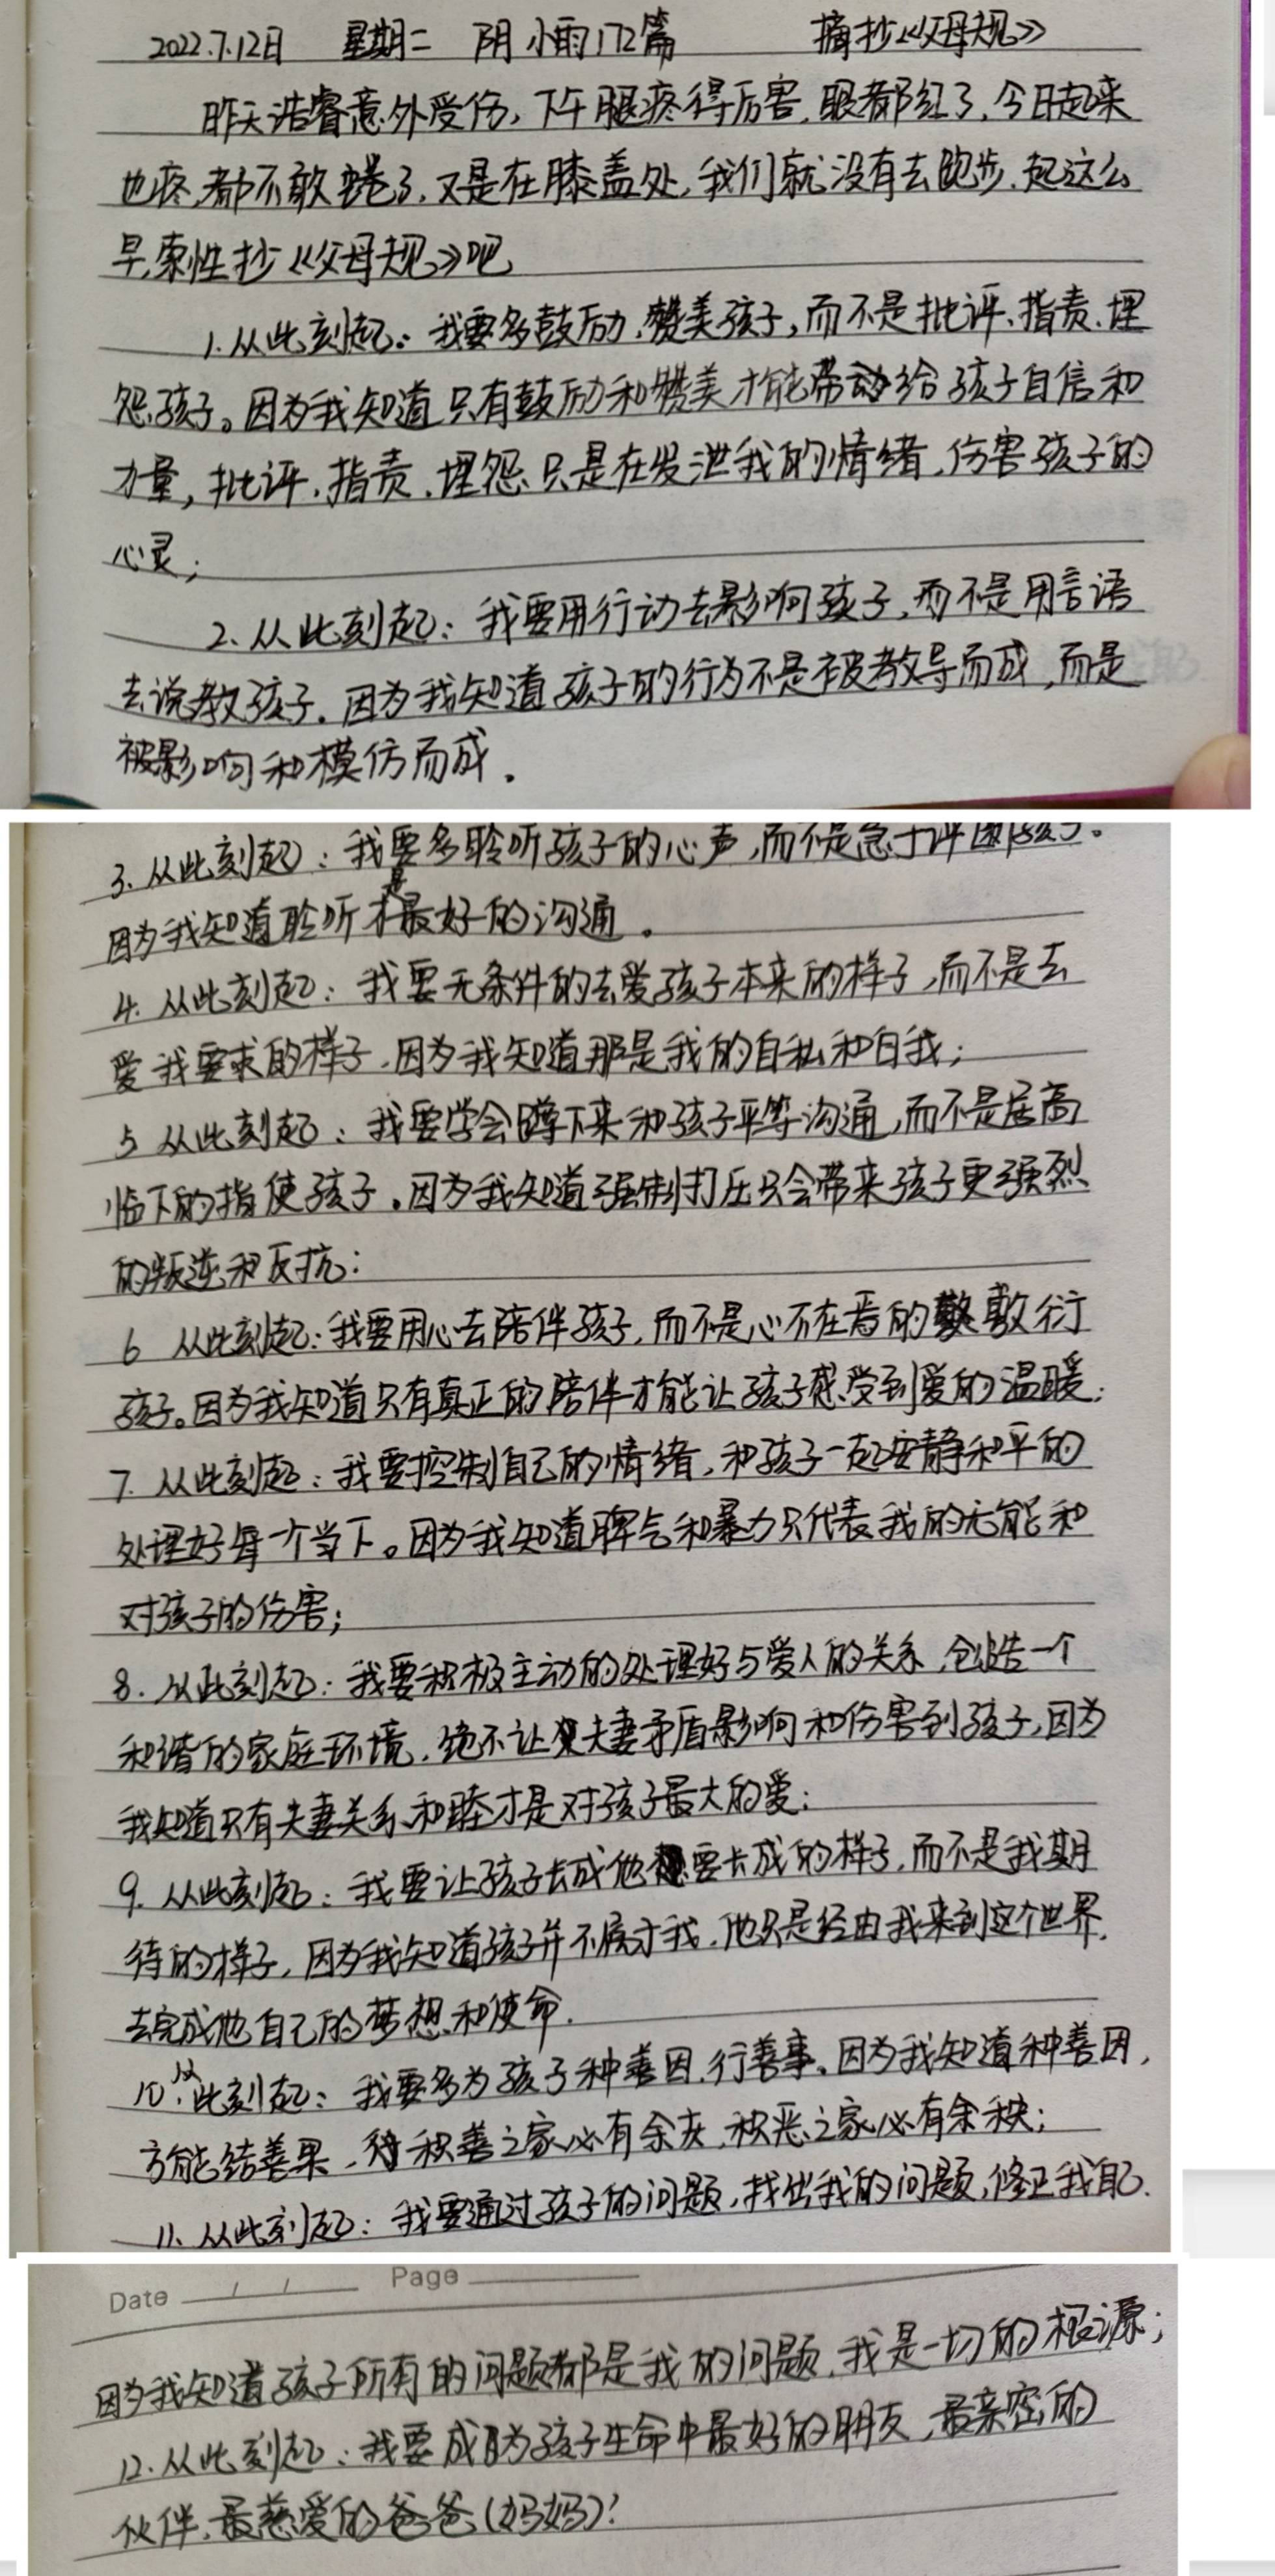 2022.7.12日 星期二 阴 小雨 172篇 摘抄《父母规》
昨天浩睿意外受伤，下午腿疼得厉害，眼都红了，今日起来
也疼，都不敢蜷了，又是在膝盖处，我们就没有去跑步，起这么
早，索性抄《父母规》吧
1.从此刻起：我要多鼓励、赞美孩子，而不是批评、指责、埋
怨孩子。因为我知道只有鼓励和赞美才能带动给孩子自信和
力量，批评、指责、埋怨只是在发泄我的情绪，伤害孩子的
心灵；
2.从此刻起：我要用行动去影响孩子，而不是用言语
去说教孩子。因为我知道孩子的行为不是被教导而成，而是
被影响和模仿而成。
3.从此刻起：我要多聆听孩子的心声，而不是急于评断孩子。
因为我知道聆听才是最好的沟通。
4.从此刻起：我要无条件的去爱孩子本来的样子，而不是去
爱我要求的样子，因为我知道那是我的自私和自我；
5 从此刻起：我要学会蹲下来和孩子平等沟通，而不是居高
临下的指使孩子。因为我知道强制打压只会带来孩子更强烈
的叛逆和反抗：
6 从此刻起：我要用心去陪伴孩子，而不是心不在焉的敷衍
孩子。因为我知道只有真正的陪伴才能让孩子感受到爱的温暖；
7.从此刻起：我要控制自己的情绪，和孩子一起安静和平的
处理好每一个当下。因为我知道脾气和暴力只代表我的无能和
对孩子的伤害；
8.从此刻起：我要积极主动的处理好与爱人的关系，创造一个
和谐的家庭环境，绝不让夫妻矛盾影响和伤害到孩子，因为
我知道只有夫妻关系和睦才是对孩子最大的爱；
9.从此刻起：我要让孩子去成他想要去成的样子，而不是我期
待的样子，因为我知道孩子并不属于我，他只是经由我来到这个世界，
去完成他自己的梦想和使命.
10.从此刻起：我要多为孩子种善因，行善事。因为我知道种善因，
方能结善果，积善之家必有余庆，积恶之家必有余秧；
11.从此刻起：我要通过孩子的问题，找出我的问题，修正我自己.
Date / / Page
因为我知道孩子所有的问题都是我的问题，我是一切的根源；
12.从此刻起：我要成为孩子生命中最好的朋友，最亲密的
伙伴，最慈爱的爸爸(妈妈)！